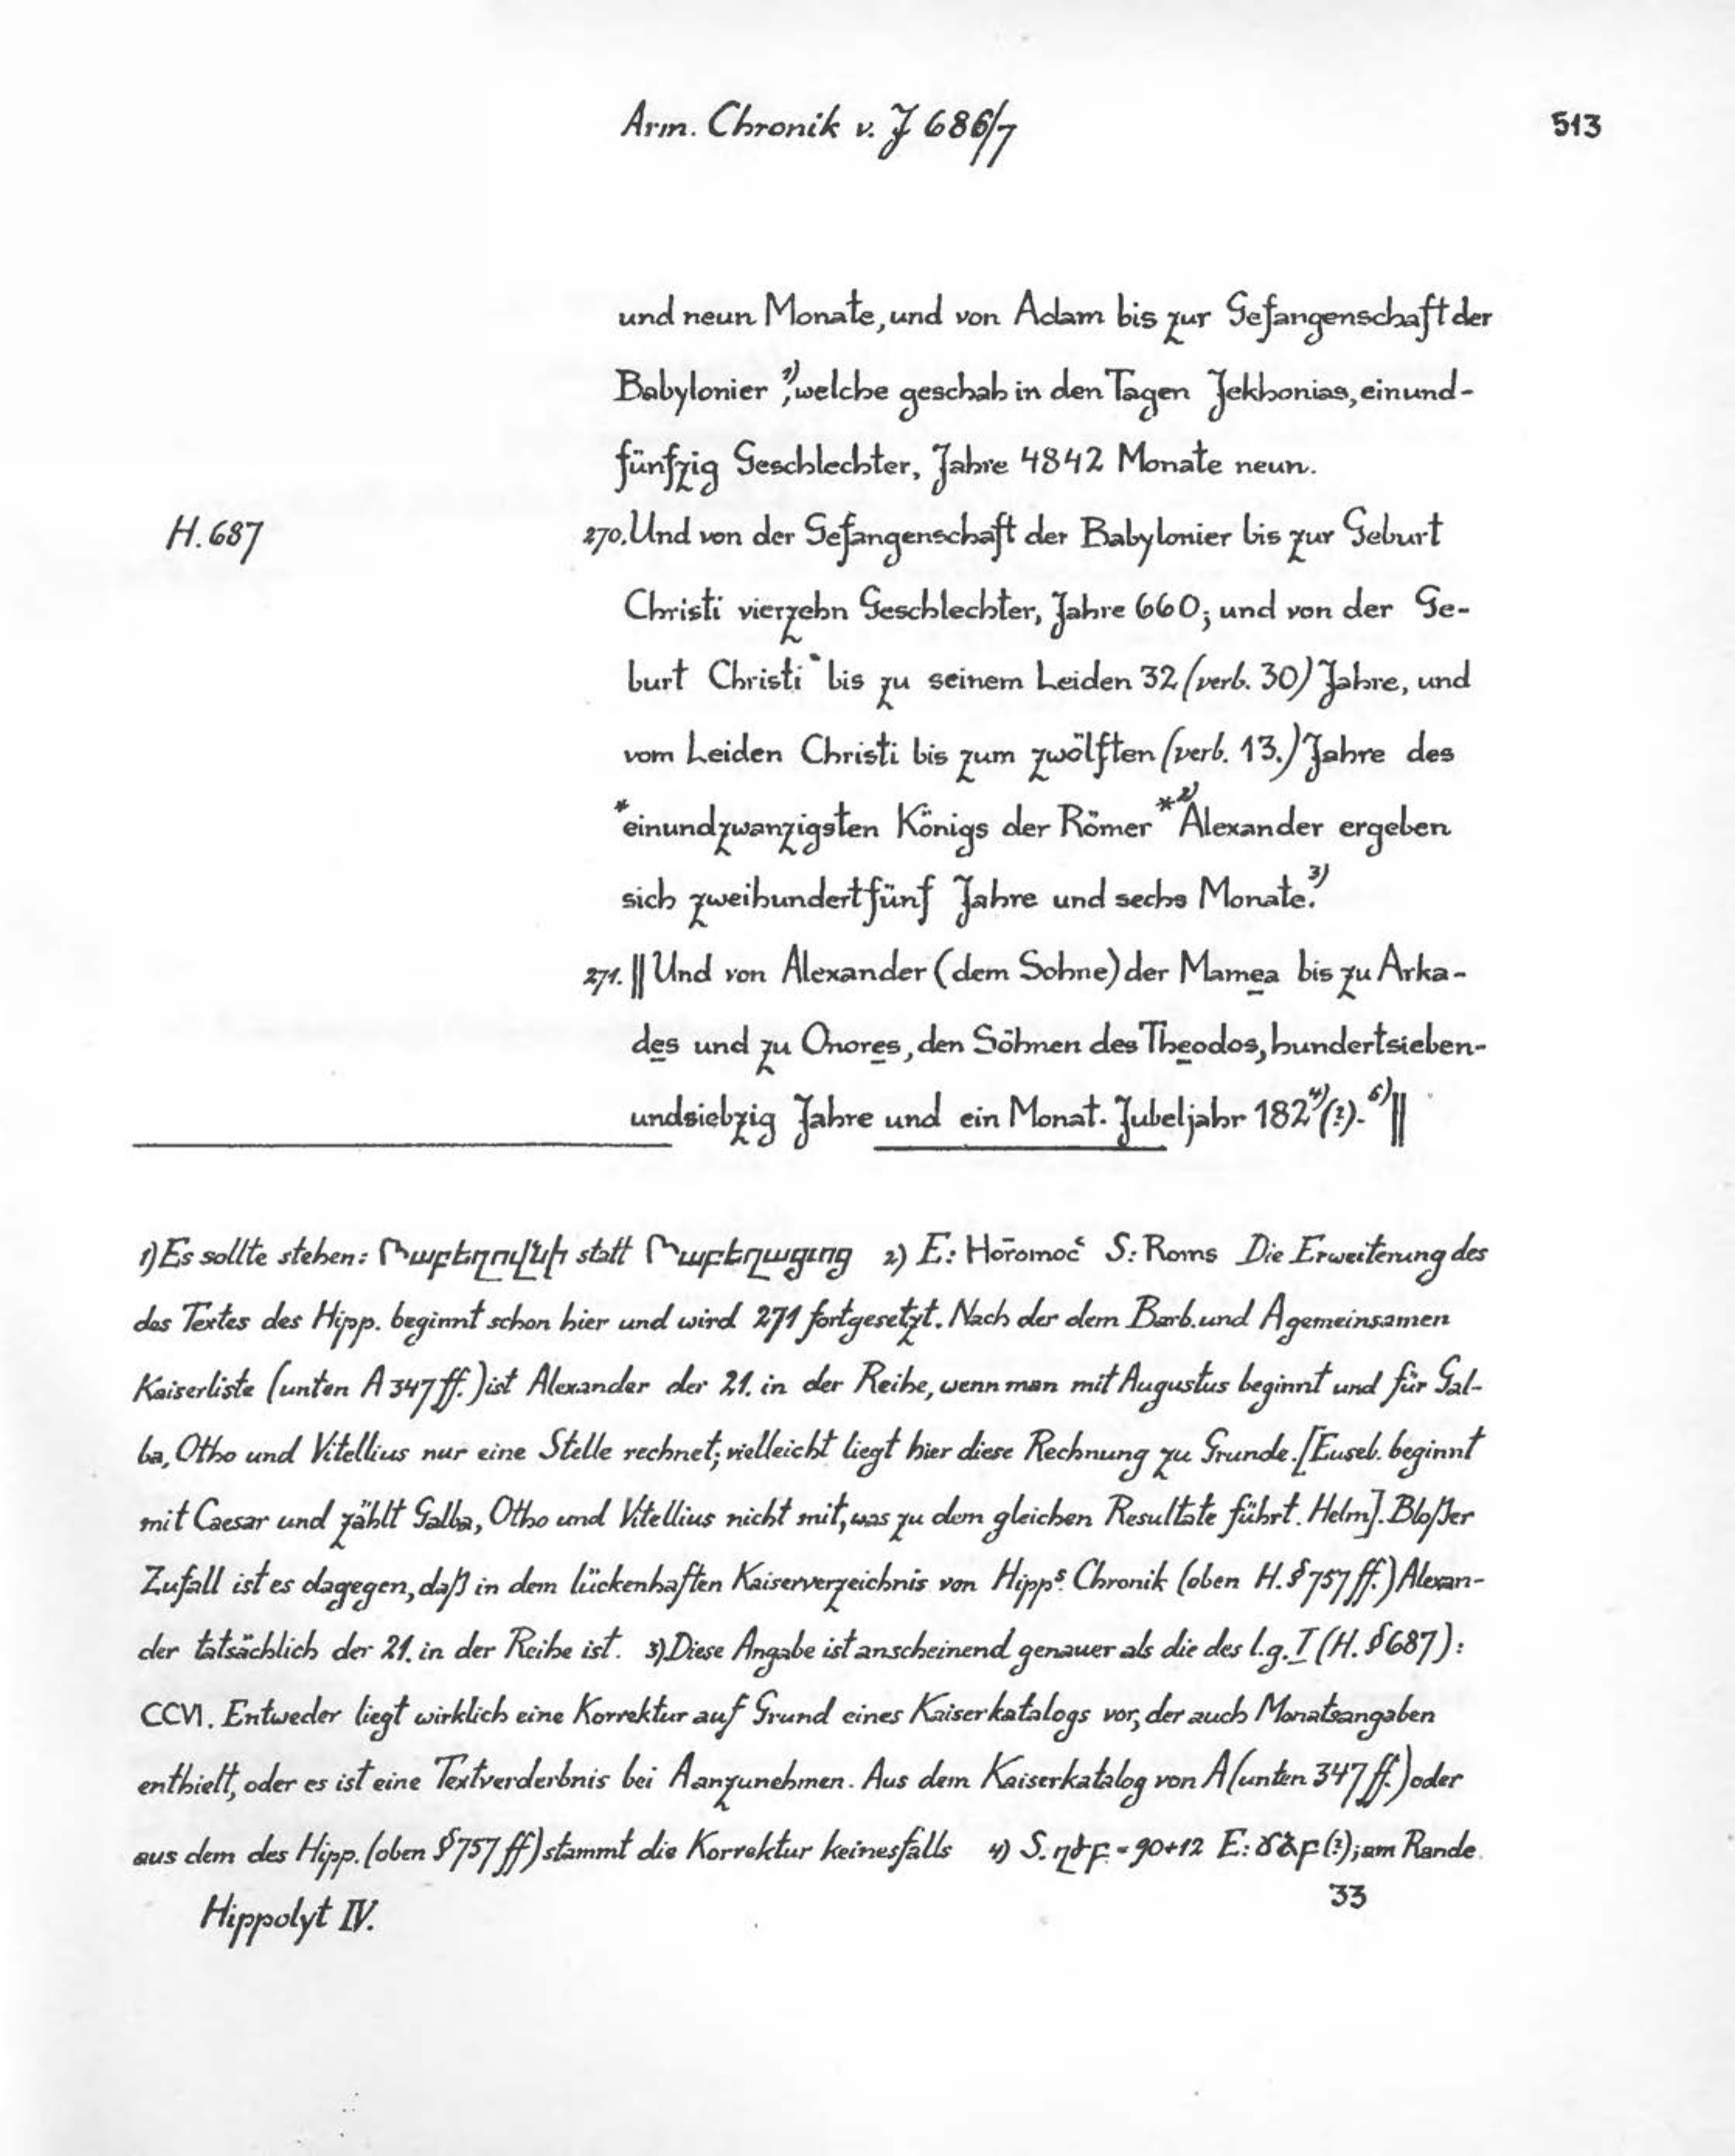 Arm. Chronik v. J 686/7
513
und neun Monate, und von Adam bis zur Gefangenschaft der
Babylonier 1), welche geschah in den Tagen Jekhonias, einund-
fünfzig Geschlechter, Jahre 4842 Monate neun.
H. 687
270. Und von der Gefangenschaft der Babylonier bis zur Geburt
Christi vierzehn Geschlechter, Jahre 660; und von der Ge-
burt Christi bis zu seinem Leiden 32 (verb. 30) Jahre, und
vom Leiden Christi bis zum zwölften (verb. 13.) Jahre des
*einundzwanzigsten Königs der Römer *2) Alexander ergeben
sich zweihundertfünf Jahre und sechs Monate. 3)
271. || Und von Alexander (dem Sohne) der Mamea bis zu Arka-
des und zu Onores, den Söhnen des Theodos, hundertsieben-
undsiebzig Jahre und ein Monat. Jubeljahr 182 4) (?). 5) ||
1) Es sollte stehen: Բաբելովնի statt Բաբելացւոց 2) E: Hoṙomoc̔ S: Roms Die Erweiterung des
des Textes des Hipp. beginnt schon hier und wird 271 fortgesetzt. Nach der dem Barb. und A gemeinsamen
Kaiserliste (unten A 347 ff.) ist Alexander der 21. in der Reihe, wenn man mit Augustus beginnt und für Gal-
ba, Otho und Vitellius nur eine Stelle rechnet; vielleicht liegt hier diese Rechnung zu Grunde. [Euseb. beginnt
mit Caesar und zählt Galba, Otho und Vitellius nicht mit, was zu dem gleichen Resultate führt. Helm]. Bloßer
Zufall ist es dagegen, daß in dem lückenhaften Kaiserverzeichnis von Hipps. Chronik (oben H. § 757 ff.) Alexan-
der tatsächlich der 21. in der Reihe ist. 3) Diese Angabe ist anscheinend genauer als die des l.g. I (H. § 687):
CCVI. Entweder liegt wirklich eine Korrektur auf Grund eines Kaiserkatalogs vor, der auch Monatsangaben
enthielt, oder es ist eine Textverderbnis bei A anzunehmen. Aus dem Kaiserkatalog von A (unten 347 ff.) oder
aus dem des Hipp. (oben § 757 ff) stammt die Korrektur keinesfalls 4) S. = 90+12 E: (?); am Rande
Hippolyt IV.
33